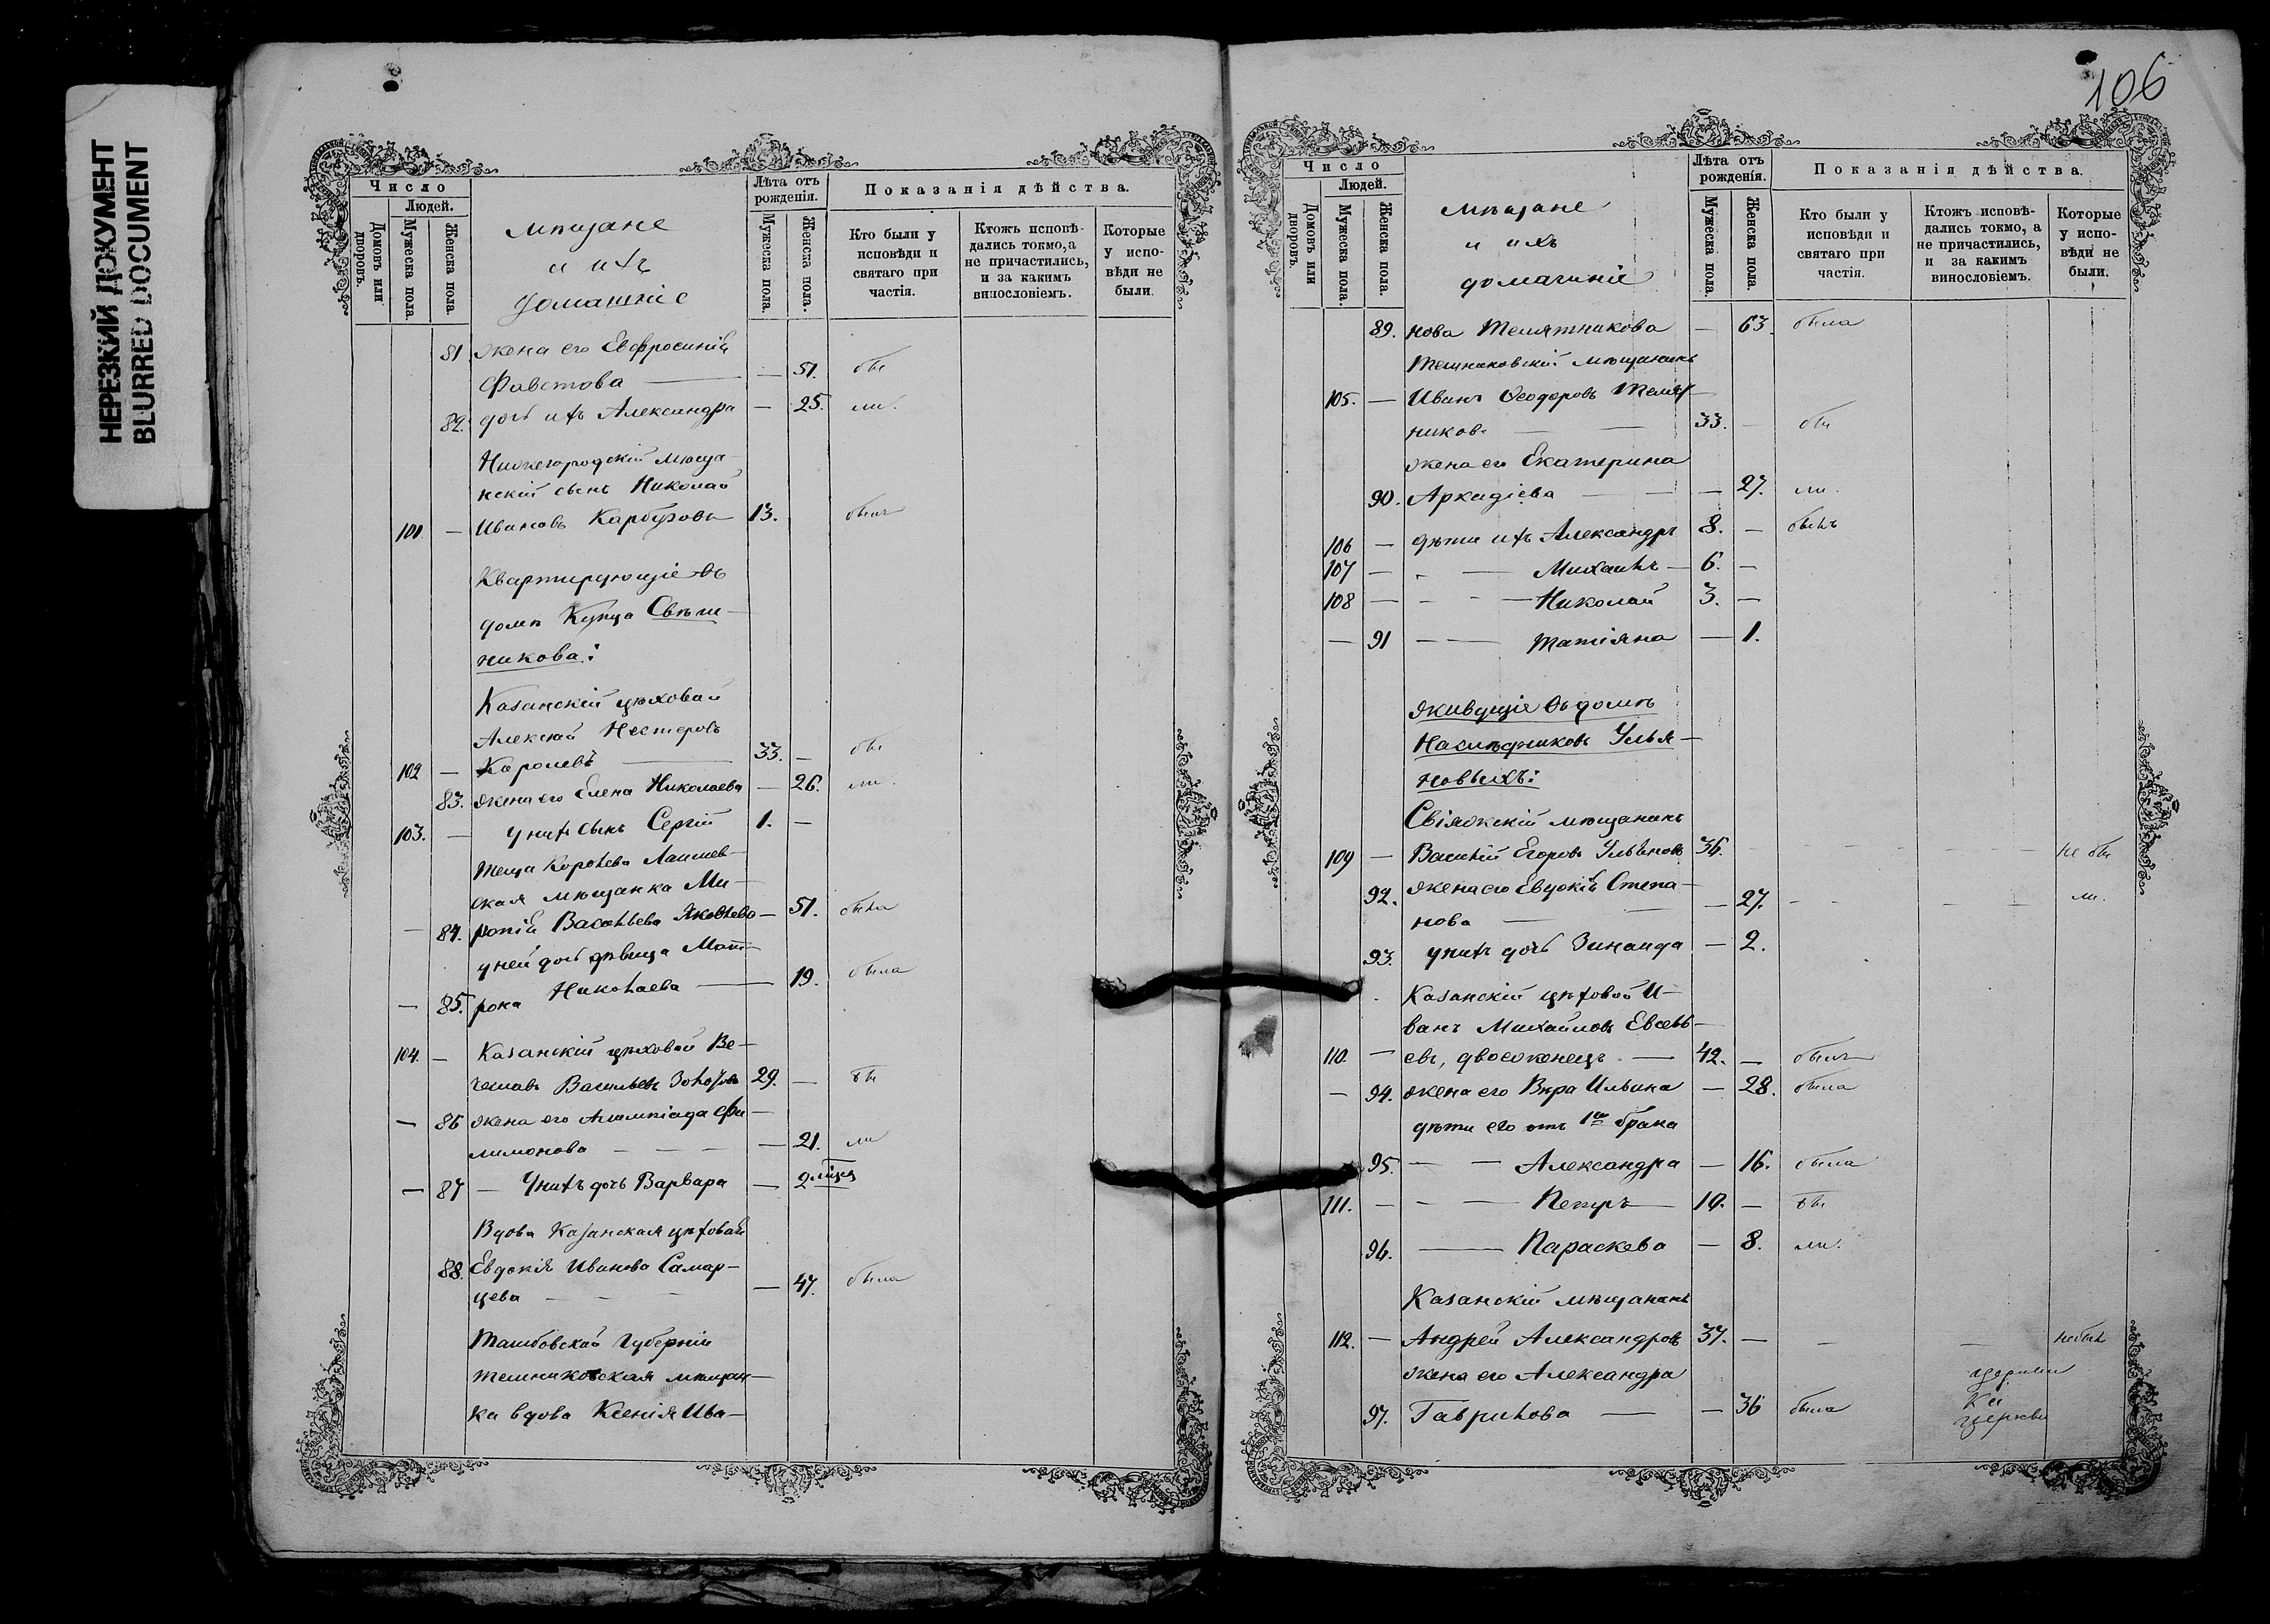 НЕРЕЗКИЙ ДОКУМЕНТ
BLURRED DOCUMENT
Число
Людей.
Домовъ или дворовъ.
Мужеска пола.
Женска пола.
мѣщане
и ихъ
домашніе
Лѣта отъ рожденія.
Мужеска пола.
Женска пола.
Показанія дѣйства.
Кто были у исповѣди и святаго при частія.
Ктожъ исповѣ- дались токмо, а не причастились, и за какимъ винословіемъ.
Которые у испо- вѣди не были.
81 жена его Евфросинія
Фавстова — — 51. бы
82. дочь ихъ Александра — 25. ли.
Нижегородскій мѣща-
нскій сынъ Николай
101 — Ивановъ Карбузовъ 13. былъ
Квартирующіе въ
домѣ Купца Свѣш-
никова:
Казанскій цѣховой
Алексѣй Нестеровъ
102 — Королевъ — 33. — бы
83. жена его Елена Николаева — 26. ли.
103. — у нихъ сынъ Сергій 1. —
Теща Королева Лаишев-
ская мѣщанка Ми-
— 84. ропія Васильева Яковлева — 51. была
у ней дочь дѣвица Мат-
— 85. рона Николаева — 19. была
104. — Казанскій цѣховой Ве-
чеславъ Васильевъ 29. — бы
— 86 жена его Алимпіада Фи-
лимонова — — — — 21. ли
— 87 — У нихъ дочь Варвара — 2 мѣся
Вдова Казанская цѣховая
88. Евдокія Иванова Самар-
цева — — — — 47. была
Тамбовской Губерніи
темниковская мѣщан-
ка вдова Ксенія Ива-
106
Число
Людей.
Домовъ или дворовъ.
Мужеска пола.
Женска пола.
мѣщане
и ихъ
домашніе
Лѣта отъ рожденія.
Мужеска пола.
Женска пола.
Показанія дѣйства.
Кто были у исповѣди и святаго при частія.
Ктожъ исповѣ- дались токмо, а не причастились, и за какимъ винословіемъ.
Которые у испо- вѣди не были.
89. нова Телятникова — 63. была
Темниковскій мѣщанинъ
105. — Иванъ Ѳеодоровъ Телят-
никовъ — — 33. — бы
жена его Екатерина
90. Аркадіева — — — 27. ли.
106 — дѣти ихъ Александръ 8. — былъ
107 — — Михаилъ — 6. —
108 — — — — Николай 3. —
— 91 — — Татіяна — 1.
Живущіе въ домѣ
Наслѣдниковъ Улья-
новыхъ:
Свіяжскій мѣщанинъ
109 — Василій Егоровъ Ульяновъ 36. — — — не бы
92. жена его Евдокія Степа-
нова — — — 27. — — — ли.
93. у нихъ дочь Зинаида — 2.
Казанскій цѣховой И-
ванъ Михайловъ Евсевь-
110. — евъ, двоеженецъ — 42. — былъ
— 94. жена его Вѣра Ильина — 28. была
дѣти его отъ 1го брака
95. — — Александра — 16. была
111. — — — Петръ — 10. — бы
96. — Параскева — 8. ли.
Казанскій мѣщанинъ
112. — Андрей Александровъ 37. — — — не былъ
жена его Александра
97. Гаврилова — — 36 была
церкви